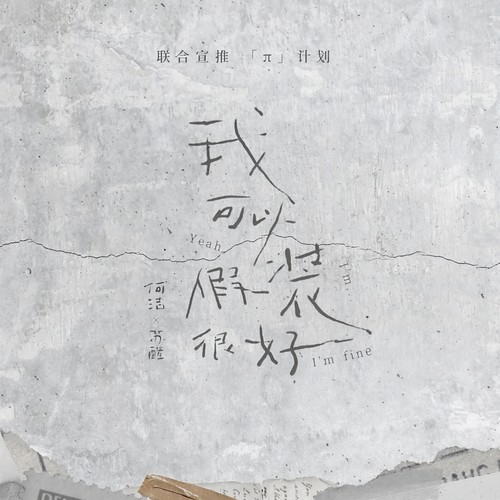 联合宣推「π」计划
我
可以
Yeah
假装
I'm
很好
I'm fine
何洁 × 苏醒